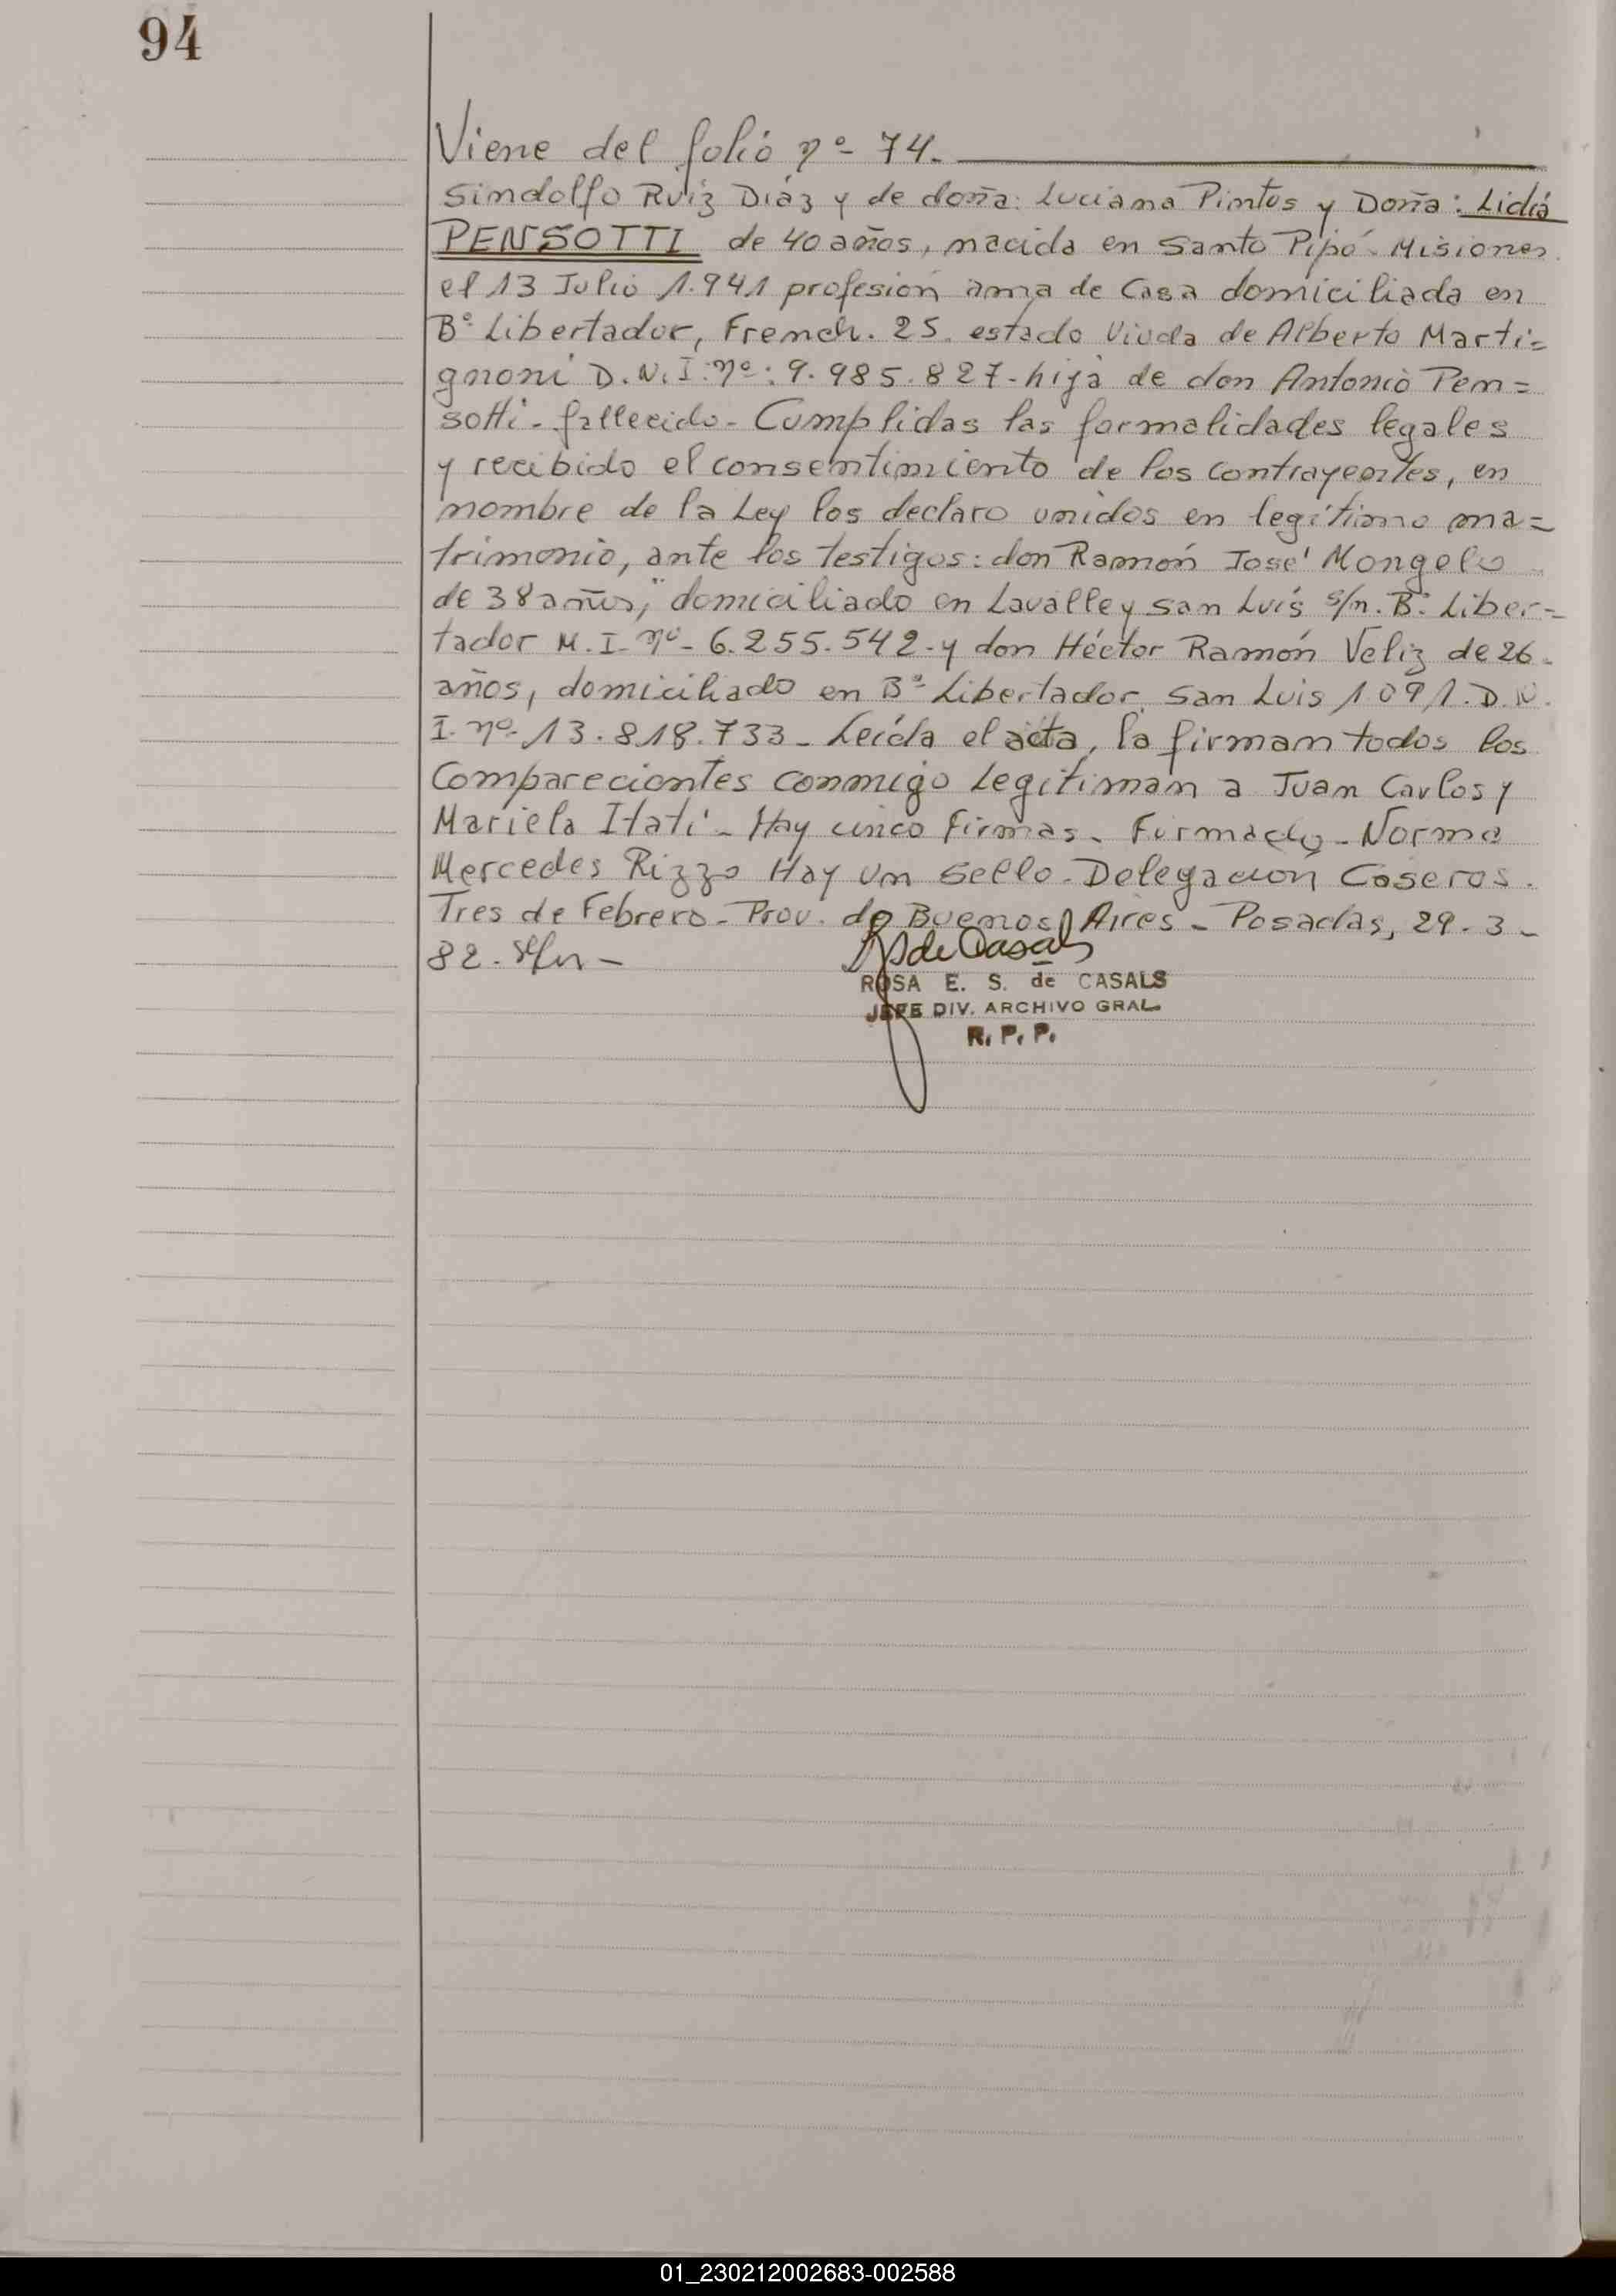 94
Viene del folio nº 74.
Sindolfo Ruiz Díaz y de doña: Luciana Pintos y Doña: Lidia
PENSOTTI de 40 años, nacida en Santo Pipó - Misiones.
el 13 Julio 1.941 profesión ama de Casa domiciliada en
Bº Libertador, French. 25. estado Viuda de Alberto Marti=
gnoni D.N.I. nº: 9.985.827 - hija de don Antonio Pen=
sotti - fallecido - Cumplidas las formalidades legales
y recibido el consentimiento de los contrayentes, en
nombre de la Ley los declaro unidos en legítimo ma=
trimonio, ante los testigos: don Ramón José Mongelo
de 38 años, domiciliado en Lavalle y San Luís s/n. Bº Liber=
tador M.I. nº - 6.255.542 - y don Héctor Ramón Veliz de 26
años, domiciliado en Bº Libertador, San Luis 1.091. D.N.
I. nº - 13.818.733 - Leída el acta, la firman todos los
Comparecientes conmigo Legitiman a Juan Carlos y
Mariela Itatí - Hay cinco Firmas - Firmado - Norma
Mercedes Rizzo Hay un Sello - Delegación Caseros.
Tres de Febrero - Prov. de Buenos Aires - Posadas, 29 - 3 -
82.
de Casals
ROSA E. S. de CASALS
JEFE DIV. ARCHIVO GRAL.
R. P. P.
01_230212002683-002588